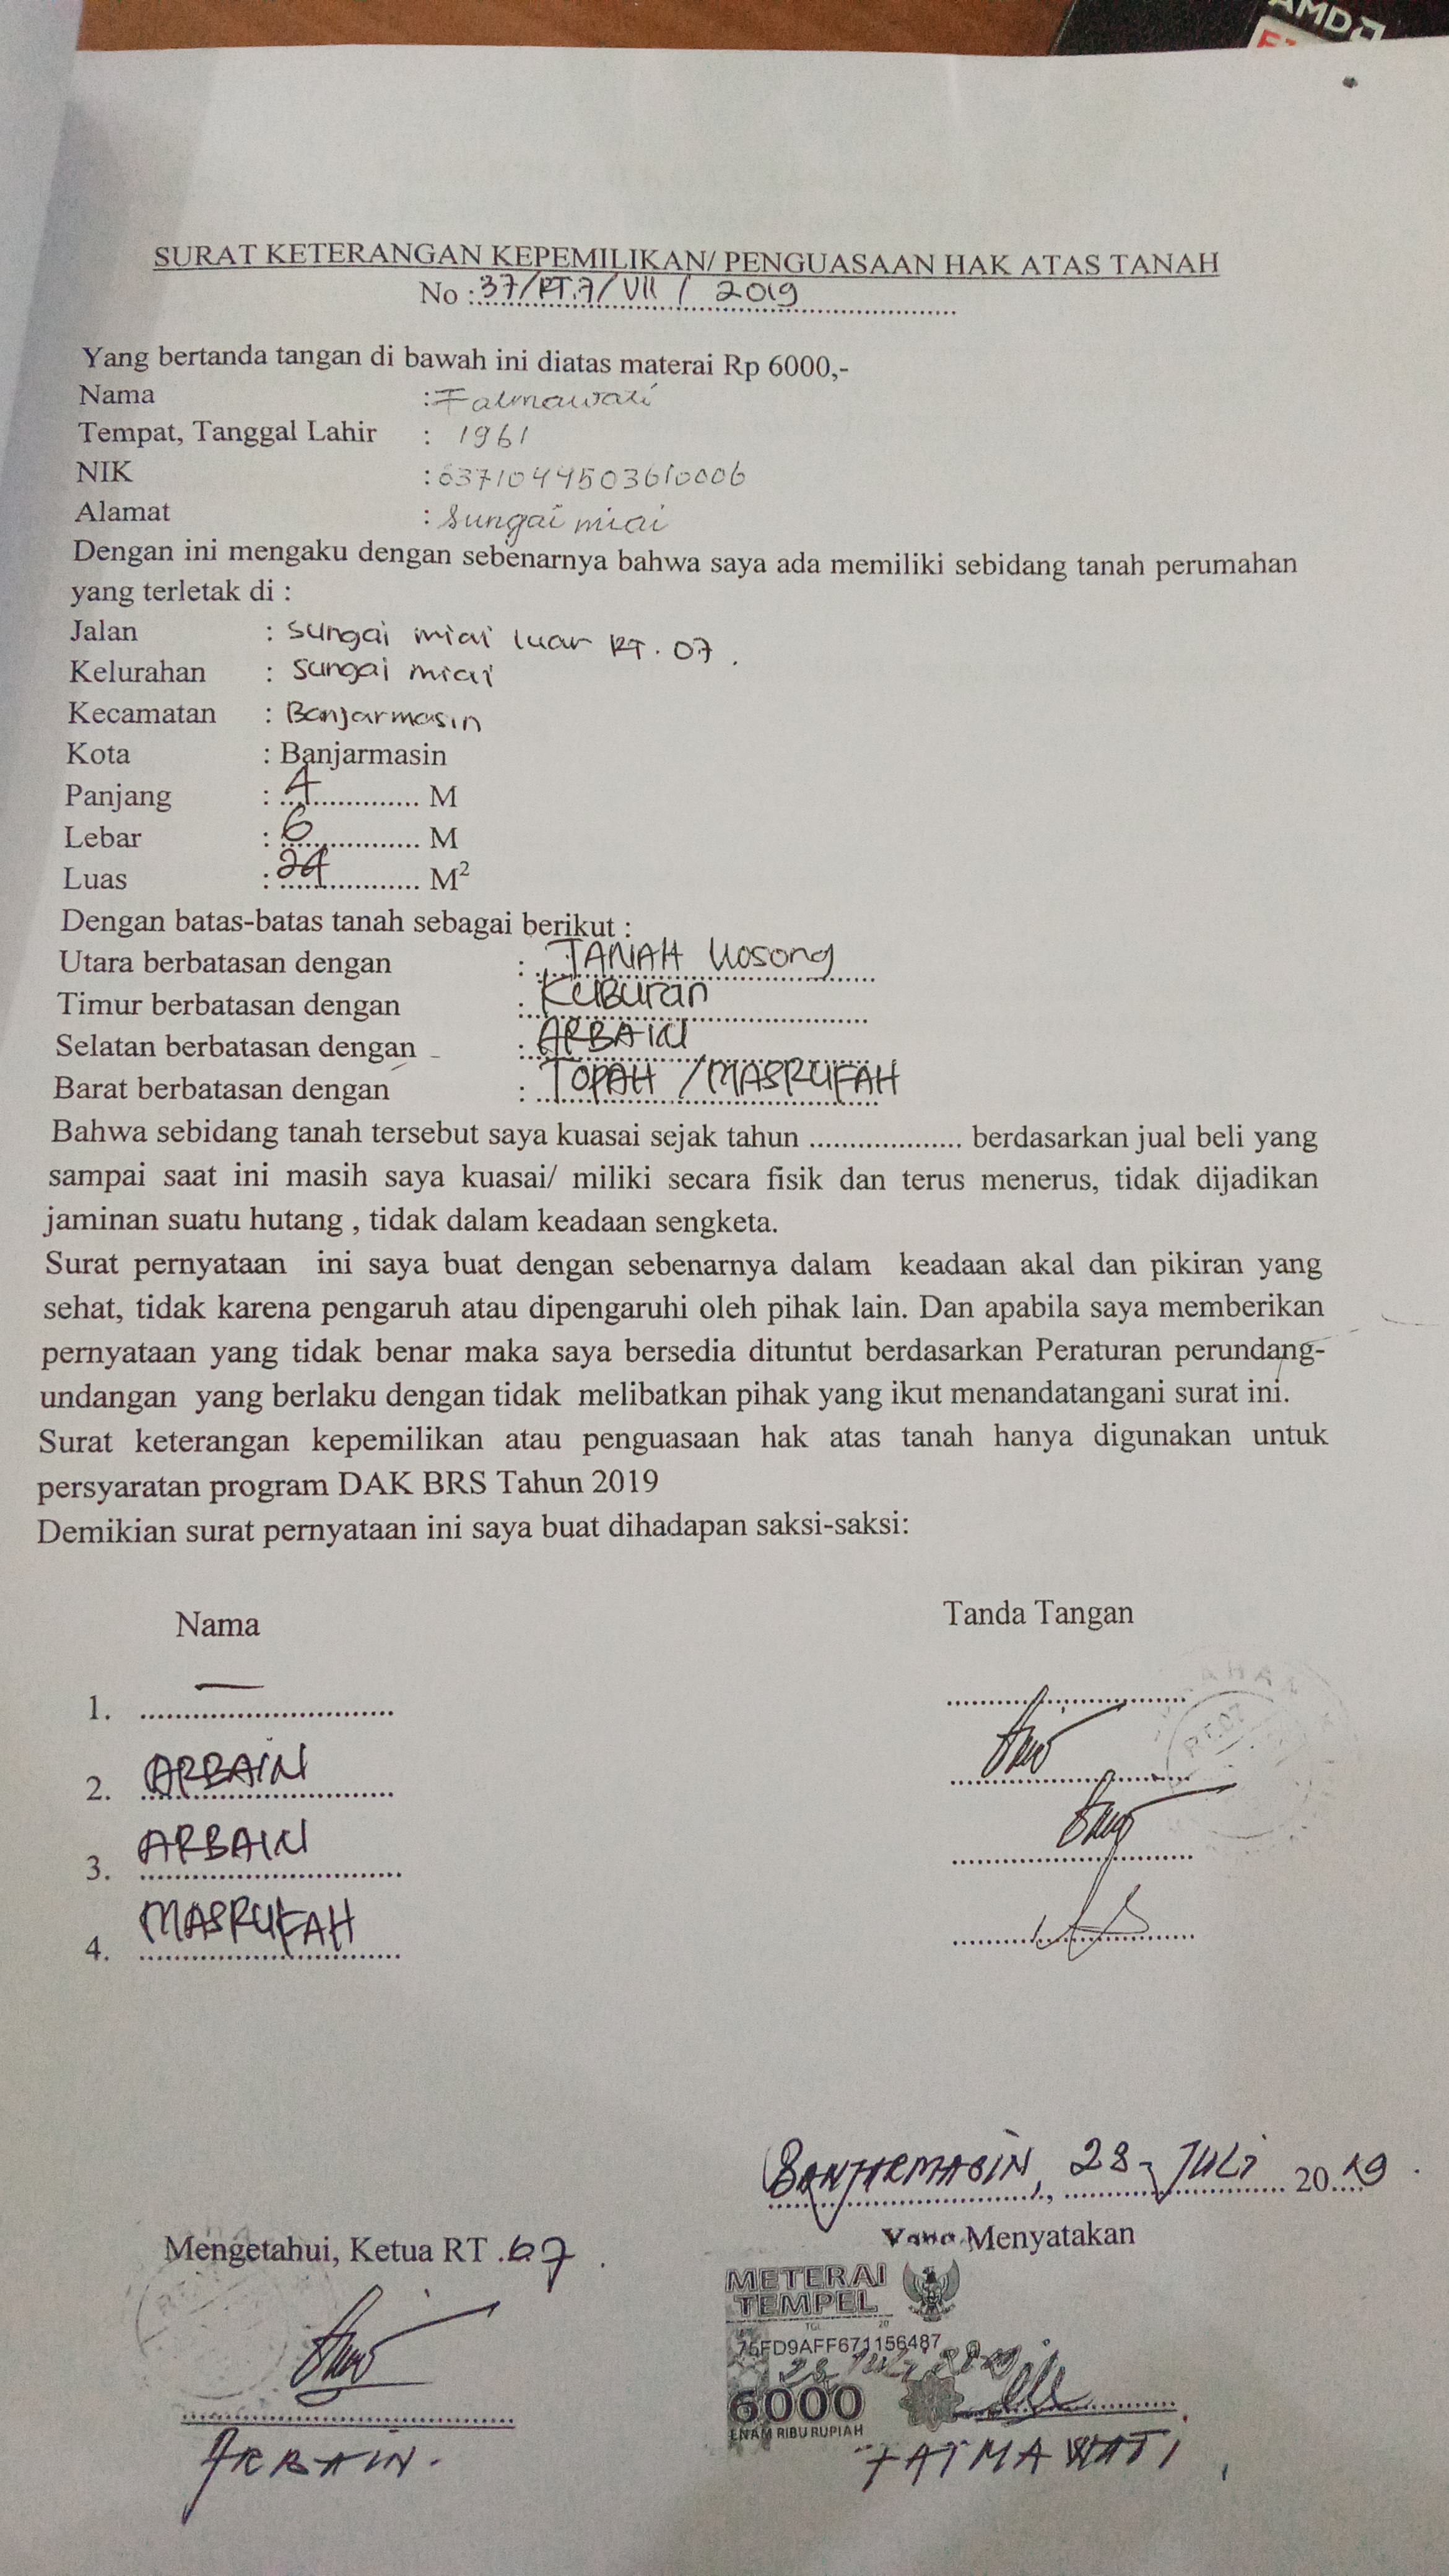 AMD
SURAT KETERANGAN KEPEMILIKAN/ PENGUASAAN HAK ATAS TANAH
No : 37/RT.7/VII / 2019
Yang bertanda tangan di bawah ini diatas materai Rp 6000,-
Nama : Fatmawati
Tempat, Tanggal Lahir : 1961
NIK : 6371044503610006
Alamat : Sungai miai
Dengan ini mengaku dengan sebenarnya bahwa saya ada memiliki sebidang tanah perumahan
yang terletak di :
Jalan : Sungai miai luar RT. 07.
Kelurahan : Sungai miai
Kecamatan : Banjarmasin
Kota : Banjarmasin
Panjang : 4 M
Lebar : 6 M
Luas : 24 M²
Dengan batas-batas tanah sebagai berikut :
Utara berbatasan dengan : TANAH Kosong
Timur berbatasan dengan : KUBUran
Selatan berbatasan dengan : ARBAIN
Barat berbatasan dengan : TOPAH / MASRUFAH
Bahwa sebidang tanah tersebut saya kuasai sejak tahun ................... berdasarkan jual beli yang
sampai saat ini masih saya kuasai/ miliki secara fisik dan terus menerus, tidak dijadikan
jaminan suatu hutang , tidak dalam keadaan sengketa.
Surat pernyataan ini saya buat dengan sebenarnya dalam keadaan akal dan pikiran yang
sehat, tidak karena pengaruh atau dipengaruhi oleh pihak lain. Dan apabila saya memberikan
pernyataan yang tidak benar maka saya bersedia dituntut berdasarkan Peraturan perundang-
undangan yang berlaku dengan tidak melibatkan pihak yang ikut menandatangani surat ini.
Surat keterangan kepemilikan atau penguasaan hak atas tanah hanya digunakan untuk
persyaratan program DAK BRS Tahun 2019
Demikian surat pernyataan ini saya buat dihadapan saksi-saksi:
Nama Tanda Tangan
1. —
2. ARBAIN
RT.07
3. ARBAIN
4. MASRUFAH
BANJARMASIN, 28 - JULI 2019.
Mengetahui, Ketua RT .07.
Yang Menyatakan
METERAI
TEMPEL
TGL 20
75FD9AFF671156487
28 Juli 2019
6000
ENAM RIBU RUPIAH
ARBAIN.
FATMAWATI